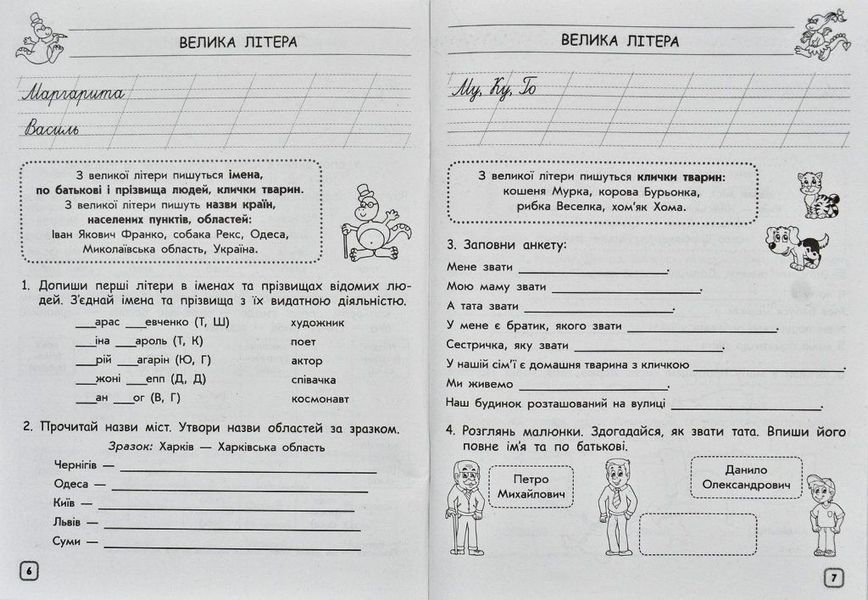 ВЕЛИКА ЛІТЕРА
Маргарита
Василь
З великої літери пишуться імена,
по батькові і прізвища людей, клички тварин.
З великої літери пишуть назви країн,
населених пунктів, областей:
Іван Якович Франко, собака Рекс, Одеса,
Миколаївська область, Україна.
1. Допиши перші літери в іменах та прізвищах відомих лю-
дей. З'єднай імена та прізвища з їх видатною діяльністю.
___арас ___евченко (Т, Ш) художник
___іна ___ароль (Т, К) поет
___рій ___агарін (Ю, Г) актор
___жоні ___епп (Д, Д) співачка
___ан ___ог (В, Г) космонавт
2. Прочитай назви міст. Утвори назви областей за зразком.
Зразок: Харків — Харківська область
Чернігів —
Одеса —
Київ —
Львів —
Суми —
6
ВЕЛИКА ЛІТЕРА
Му, Ку, Го
З великої літери пишуться клички тварин:
кошеня Мурка, корова Бурьонка,
рибка Веселка, хом'як Хома.
3. Заповни анкету:
Мене звати ___.
Мою маму звати ___.
А тата звати ___.
У мене є братик, якого звати ___.
Сестричка, яку звати ___.
У нашій сім'ї є домашня тварина з кличкою ___.
Ми живемо ___.
Наш будинок розташований на вулиці ___.
4. Розглянь малюнки. Здогадайся, як звати тата. Впиши його
повне ім'я та по батькові.
Петро
Михайлович
Данило
Олександрович
7